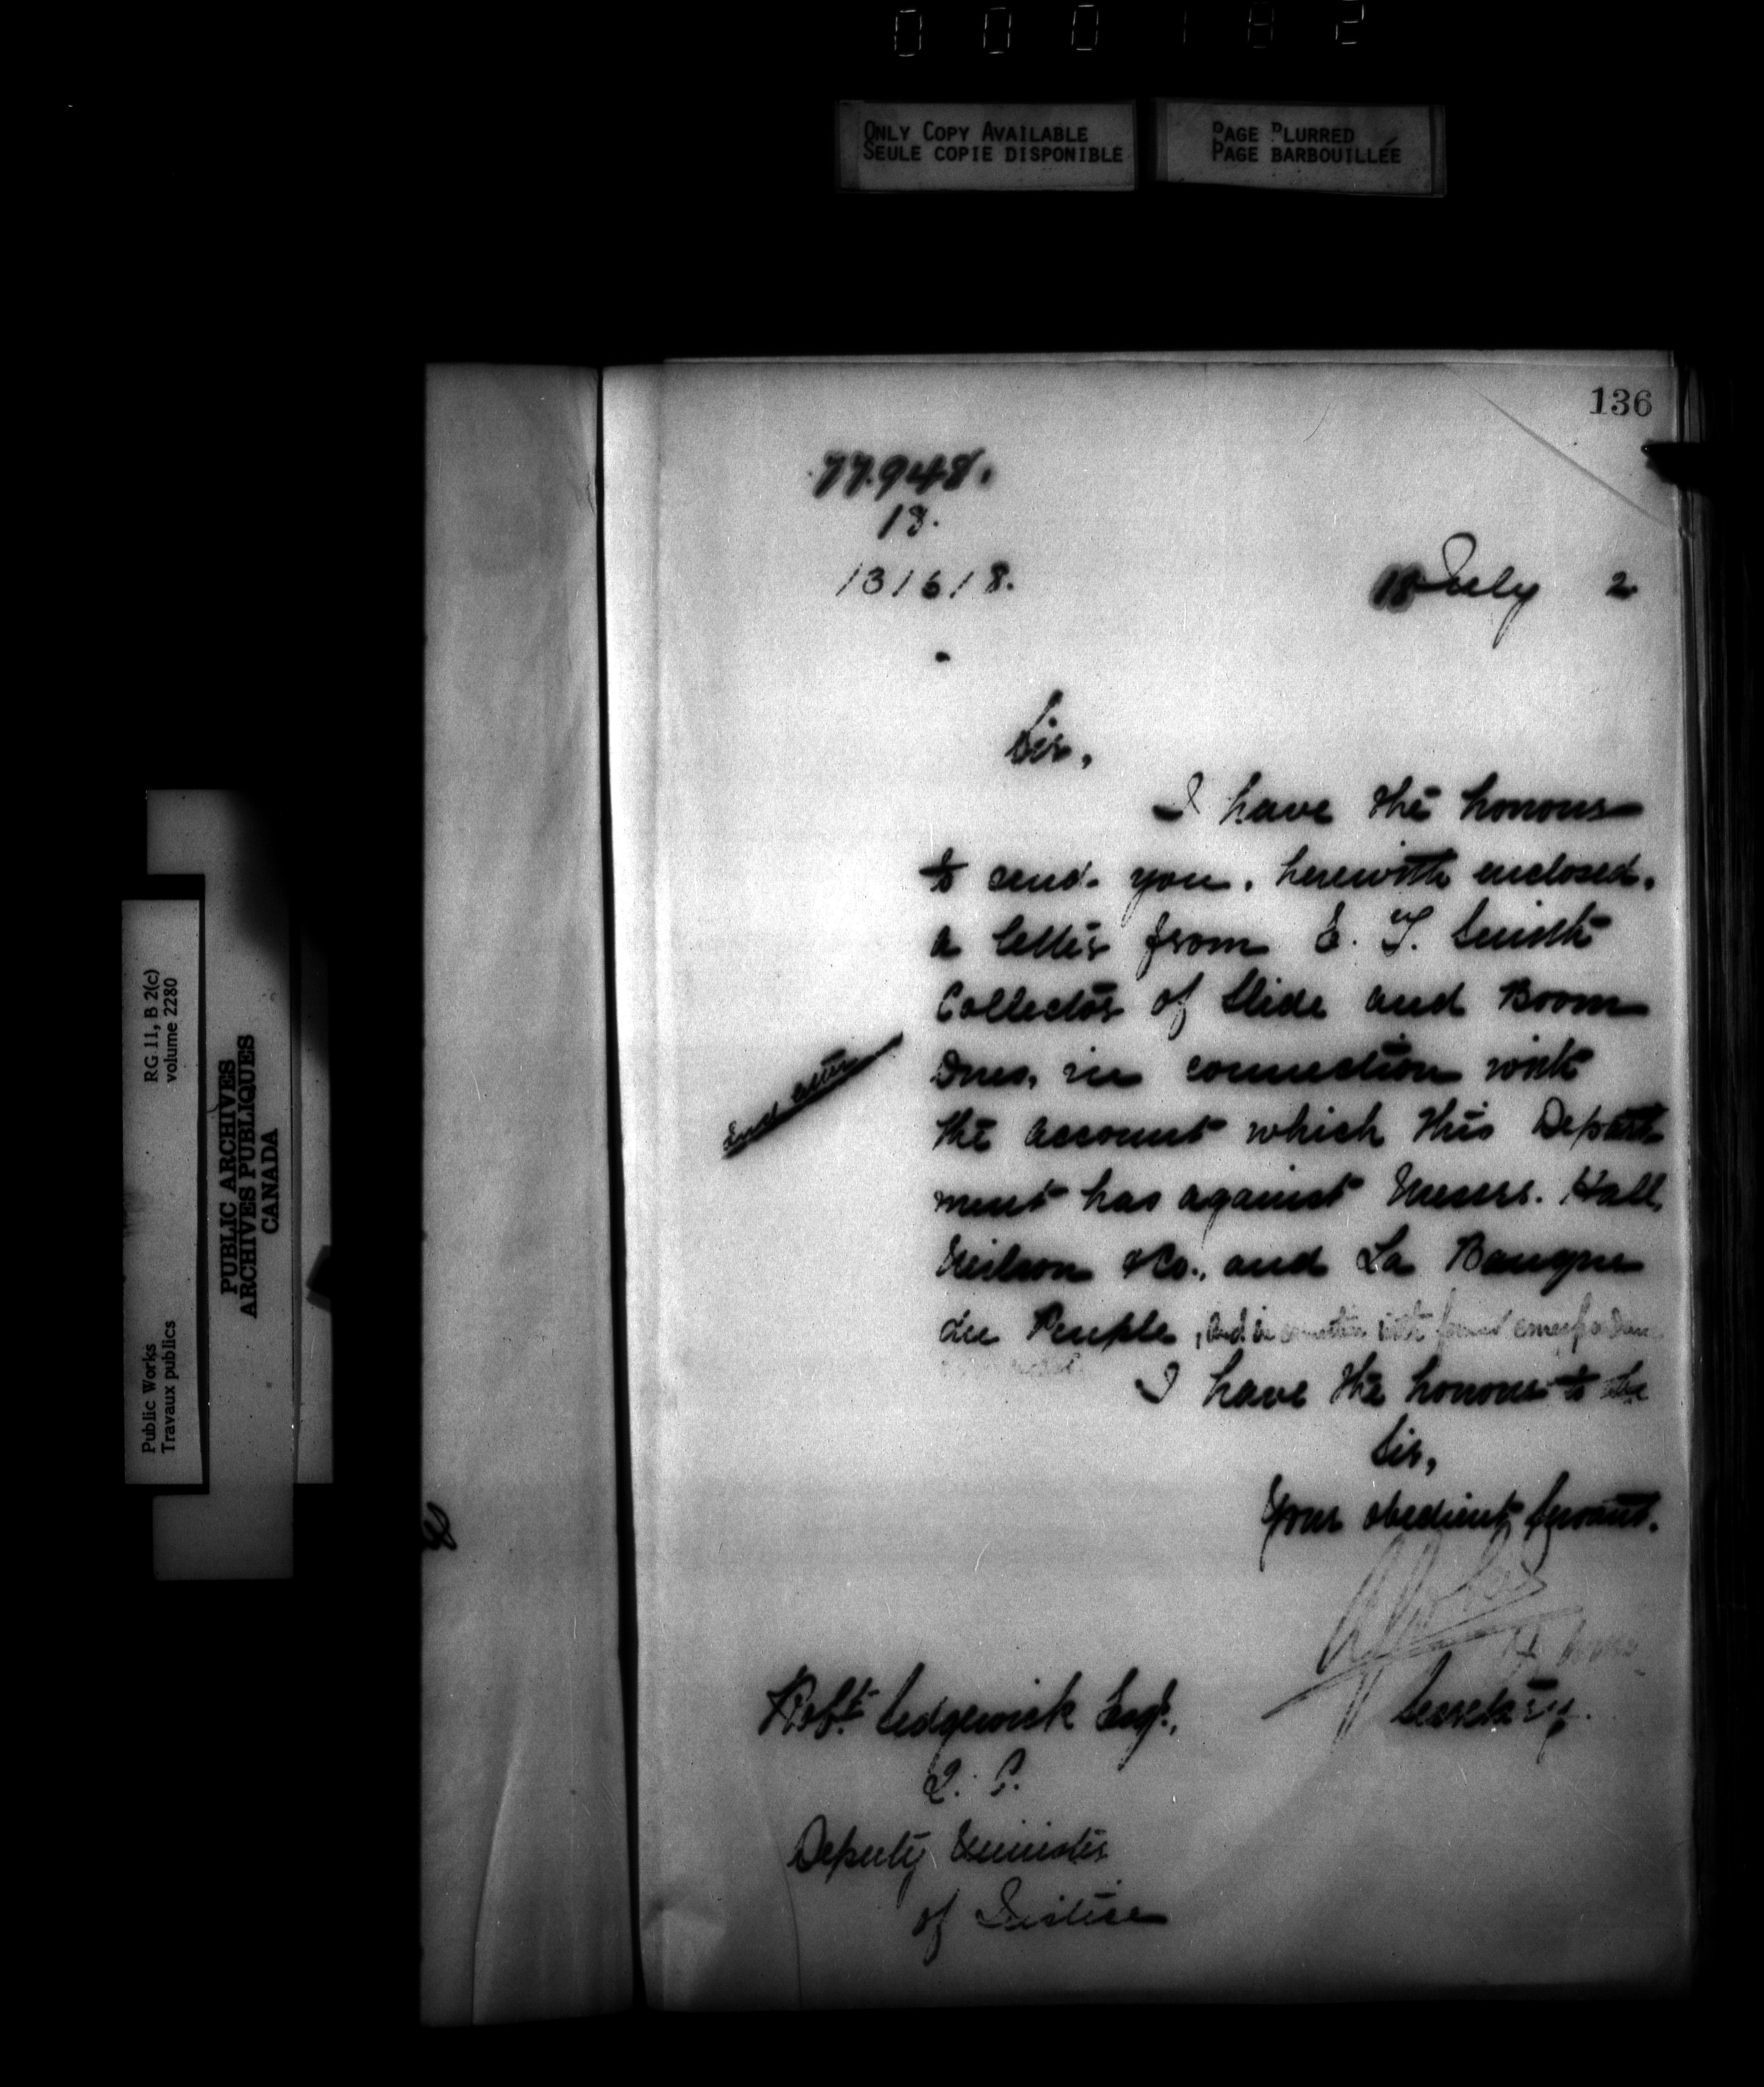 000182
ONLY COPY AVAILABLE
SEULE COPIE DISPONIBLE
PAGE BLURRED
PAGE BARBOUILLÉE
136
77.948.
13.
131618.
18 July 2
Sir,
I have the honour
to send you, herewith enclosed,
a letter from E. T. Smith
Collector of Slide and Boom
Dues, in connection with
the account which this Depart
ment has against Messrs. Hall,
Neilson &Co., and La Banque
du Peuple, and in connection with former correspondence
I have the honour to be
Sir,
Your obedient Servant.
Secretary.
Encl letter
Robt. Sedgewick Esq.,
Q. C.
Deputy Minister
of Justice
RG 11, B 2(c)
volume 2280
Public Works
Travaux publics
PUBLIC ARCHIVES
ARCHIVES PUBLIQUES
CANADA